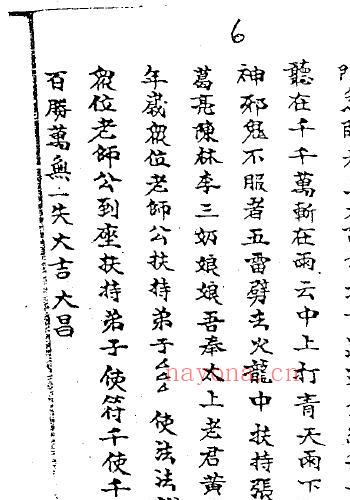 6
聽在千千萬斬在雨云中上打青天雨下
神邪鬼不服者五雷劈主火龍中扶持張
葛亮陳林李三奶娘娘吾奉太上老君黄
年歲眾位老師公扶持弟子厶厶使法法
眾位老師公到座扶持弟子使符千使千
百勝萬無一失大吉大昌